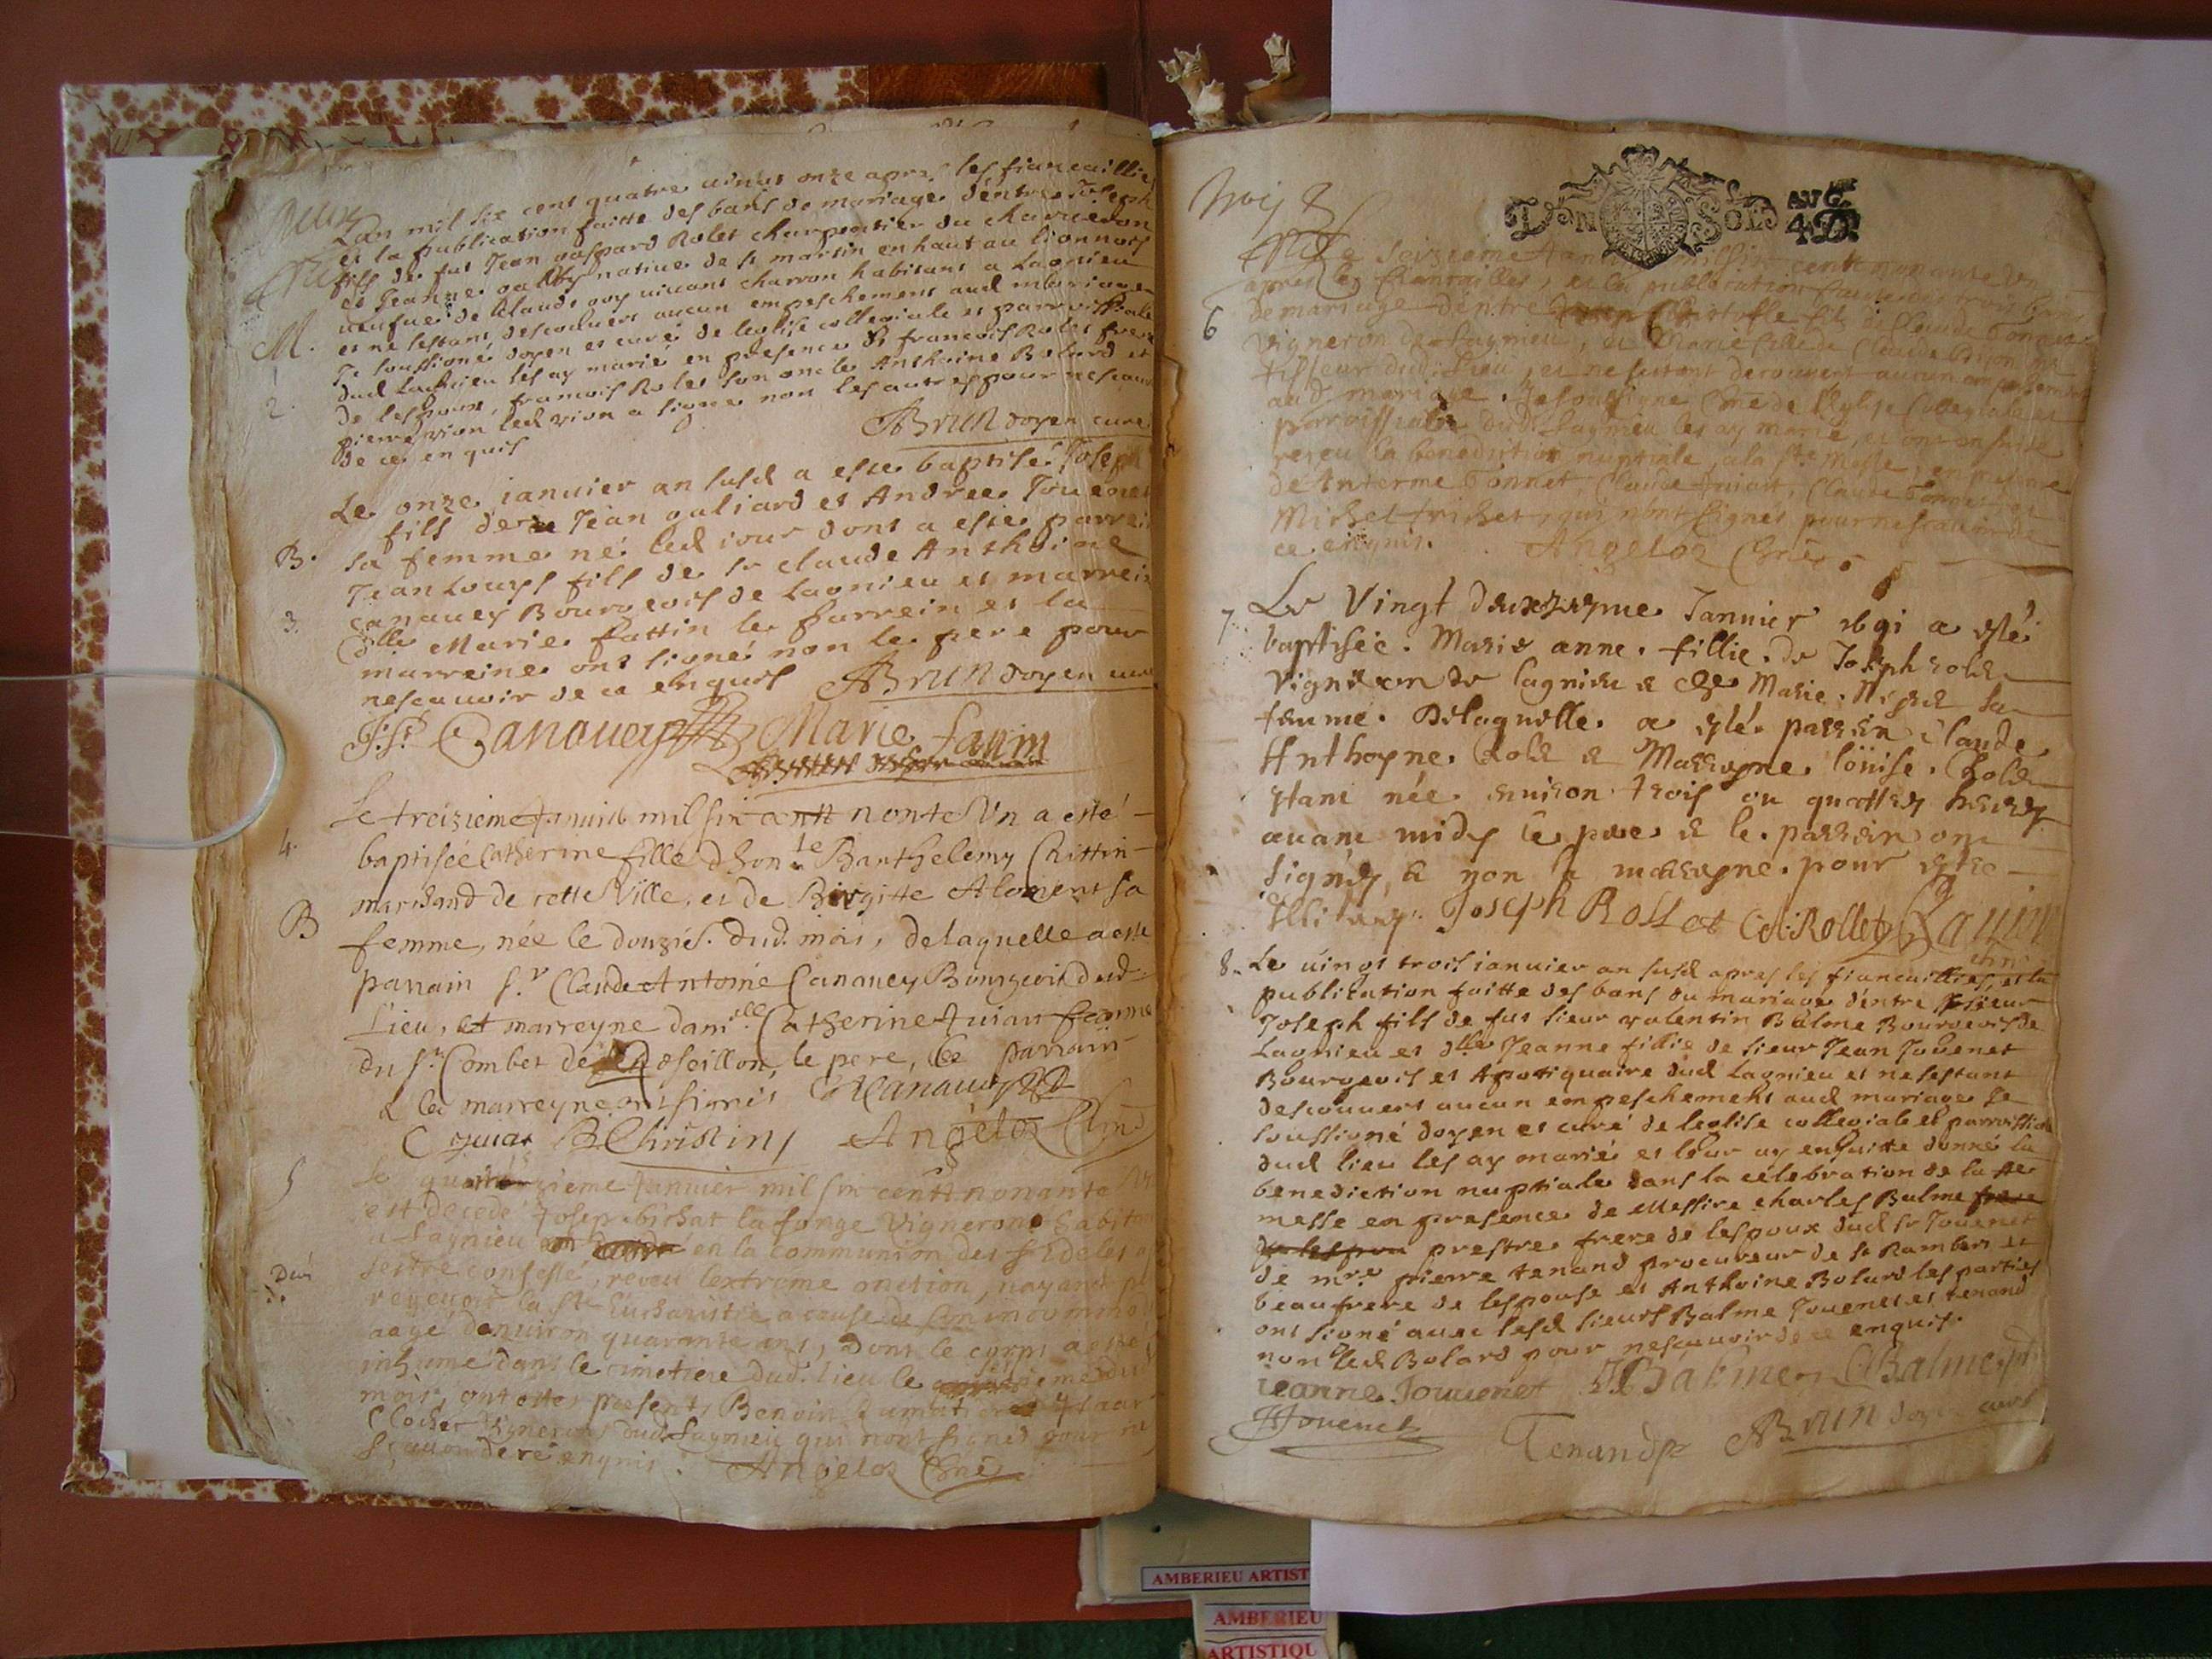 Lan mil six cent quatre vingt onze apres les fiancaillies
et la publication faitte des bans de mariage dentre Joseph
fils de fut Jean gaspard Rolet charpentier du
et Jeanne natiue de st martin en haut au lionnois
ueufue de Claude uiuant charron habitant a Lagnieu
et ne sestant descouuert aucun empeschement aud mariage
M.
Je soussigné doyen et curé de leglise collegiale et parroissiale
dud Lagnieu les ay marié en presence de francois Rolet frere
2.
de lespoux, francois Rolet son oncle Anthoine Bolard et
pierre led a signé non les autres pour nescauoir
de ce enquis
ABrun doyen curé
Le onze ianuier an susd a este baptisé Joseph
fils de Jean galiard et Andree Jouenet
B.
sa femme né led iour dont a este parrein
Jean Louys fils de sr claude Anthoine
canauey Bourgeois de Lagnieu et marreine
3.
dlle Marie fattin le parrein et la
marreine ont signé non le pere pour
nescauoir de ce enquis ABrun doyen curé
Canauey Marie fatin
Le treizieme Januier mil six centt nonte Vn a esté
4.
baptisée Catherine fille dhon.te Barthelemy Christin
marchand de cette Ville, et de Birgitte Aloment sa
B
femme, née le douzie. dud. mois, de laquelle a este
parrain S.r Claude Antoine Canauey Bourgeois dud
Lieu, et marreyne dam.lle Catherine Juian femme
du S.r Combet de Roseillon, le pere, le parrain
& la marreyne ont signés Canauey
B.Christin Angelot
5
Le quattorzieme Januier mil six centt nonante Vn
est decedé Joseph bichat la fonge Vigneron habitant
a Lagnieu en la communion des fideles
sestre confessé, receu lextreme onction, nayant pu
Dec
receuoir la Ste Eucharistie a cause de son incommodité
aagé denuiron quarante ans, dont le corps a esté
inhumé dans le cimetiere dud. lieu le
mois, ont estes presents Benoit
Vignerons dud. Lagnieu qui nont signés pour ne
scauoir de ce enquis. Angelot
DEN SOLS AVG.
4 D.
Le seizieme centt nonante Vn
apres les fiancailles, et la publication faite des trois bans
6
de mariage dentre fils de Claude bonnet
Vigneron de Lagnieu, et Marie fille de Claude
tisseur dud. Lieu, et ne sestant decouuert aucun empeschement
aud. mariage. Je soussigne de leglise Collegiale et
parroissiale dud. Lagnieu les ay marié, et ont en suite
receu la benediction nuptiale, a la Ste Messe, en presence
de Anterme bonnet Claude Claude bonnet, et
Michel qui nont signés pour ne scauoir de
ce enquis. Angelot
7
Le Vingt deuxzieme Jannier a esté
baptisée. Marie anne. fillie. de Joseph rolet
Vigneron de lagnieu & de Marie. sa
femme. De laquelle. a esté. parrein Claude.
Anthoyne. Rolet & Marreyne. loüise. Rolet
estant née. enuiron trois ou quattre heures
auant midy le pere & le. parrein ont
signés, & non la marreyne. pour estre
illiteré. Joseph Rollet Cl. Rollet
8. Le uingt trois ianuier an susd apres les fiancaillies, et la
publication faitte des bans du mariage dentre sieur
Joseph fils de fut sieur valentin Balme Bourgeois de
Lagnieu et dlle Jeanne fillie de sieur Jean Jouenet
Bourgeois et Apotiquaire dud Lagnieu et ne sestant
descouuert aucun empeschement aud mariage Je
soussigné doyen et curé de leglise collegiale et parroissiale
dud lieu les ay mariés et leur ay ensuitte donné la
benediction nuptiale dans la célébration de la ste
messe en presence de Messire charles Balme
prestre frere de lespoux dud sr Jouenet
de mre pierre tenand procureur de st Rambert et
beaufrere de lespouse et Anthoine Bolard les parties
ont signé auec lesd sieurs Balme Jouenet et tenand
non led Bolard pour nescauoir de ce enquis.
ieanne Jouuenet JBalme CBalme ptre
JJouenet
Tenand ABrun doyen curé
AMBERIEU ARTIST
AMBERIEU
ARTISTIQU